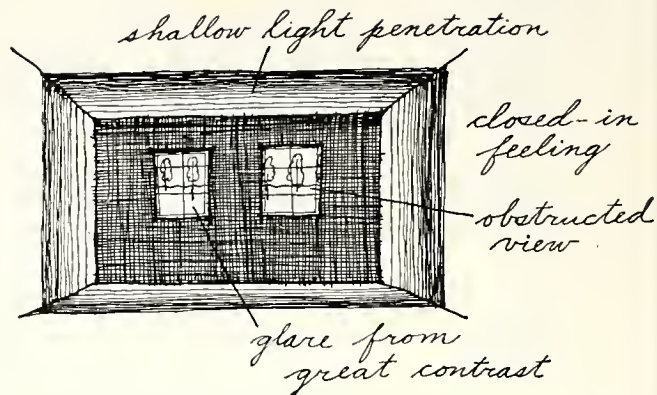 shallow light penetration
closed-in
feeling
obstructed
view
glare from
great contrast